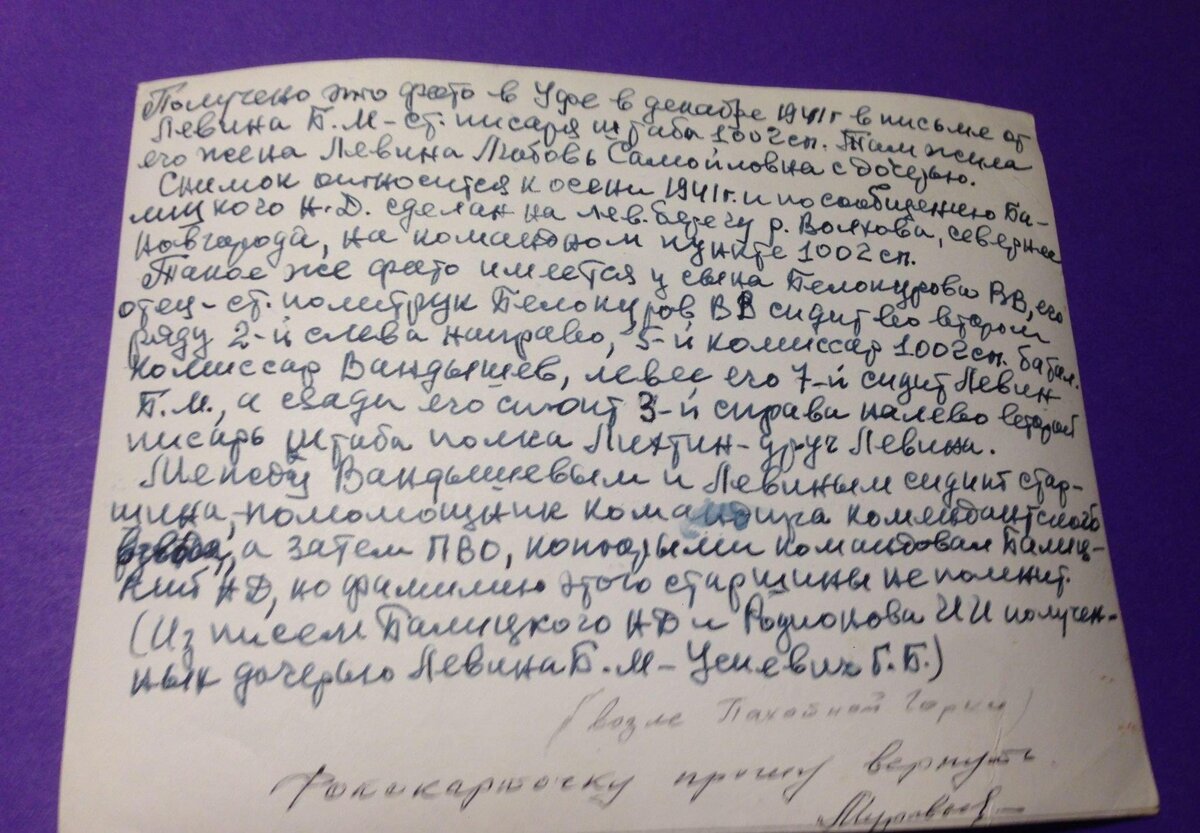 Получено это фото в Уфе в декабре 1941г в письме от
Левина Б.М – ст. писаря штаба 1002сп. Там жила
его жена Левина Любовь Самойловна с дочерью.
Снимок относится к осени 1941г. и по сообщению Ба-
лицкого Н.Д. сделан на лев. берегу р. Волхова, севернее
Новгорода, на командном пункте 1002 сп.
Такое же фото имеется у сына Белокурова ВВ, его
отец – ст. политрук Белокуров ВВ сидит во втором
ряду 2-й слева направо, 5-й комиссар 1002сп. батал.
комиссар Вандышев, левее его 7-й сидит Левин
Б.М., а сзади его стоит 3-й справа налево второй
писарь штаба полка Лихтин – друг Левина.
Между Вандышевым и Левиным сидит стар-
шина, – помощник командира комендантского
взвода, а затем ПВО, которыми командовал Балиц-
кий НД, но фамилию этого старшины не помнит.
(Из писем Балицкого НД и Родионова ИИ получен-
ных дочерью Левина Б.М – Усиевич Г.Б.)
(возле Горки)
Фотокарточку прошу вернуть